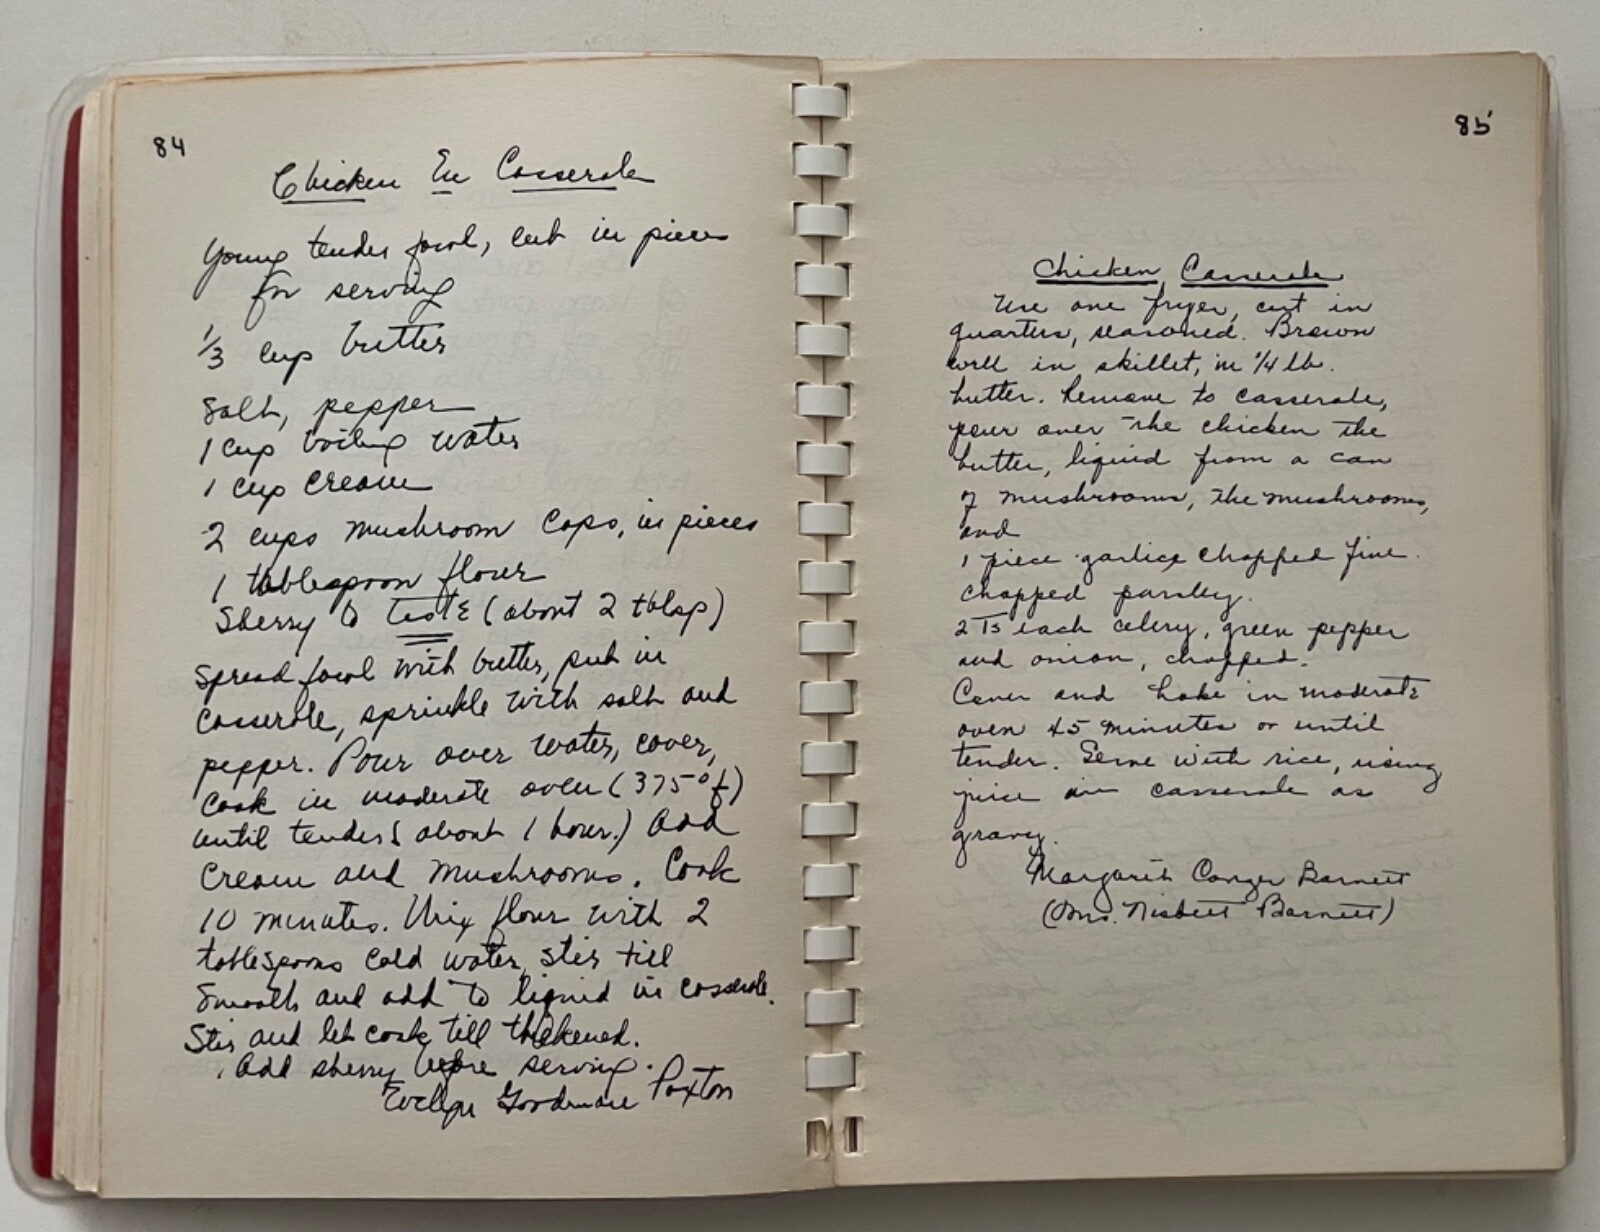 84
Chicken En Casserole
Young tender fowl, cut in pieces
for serving
1/3 cup butter
Salt, pepper
1 cup boiling water
1 cup cream
2 cups mushroom caps, in pieces
1 tablespoon flour
Sherry to taste (about 2 tblsp)
Spread fowl with butter, put in
casserole, sprinkle with salt and
pepper. Pour over water, cover,
Cook in moderate oven (375° f)
until tender (about 1 hour.) Add
cream and mushrooms. Cook
10 minutes. Mix flour with 2
tablespoons cold water, stir till
smooth and add to liquid in casserole.
Stir and let cook till thickened.
Add sherry before serving.
Evelyn Goodman Paxton
85
Chicken Casserole
Use one fryer, cut in
quarters, seasoned. Brown
well in skillet, in 1/4 lb.
butter. Remove to casserole,
pour over the chicken the
butter, liquid from a can
of mushrooms, the mushrooms,
and
1 piece garlic chopped fine.
chopped parsley.
2 Ts each celery, green pepper
and onion, chopped.
Cover and bake in moderate
oven 45 minutes or until
tender. Serve with rice, using
juice in casserole as
gravy.
Margaret Conger Barnett
(Mrs. Nisbett Barnett)